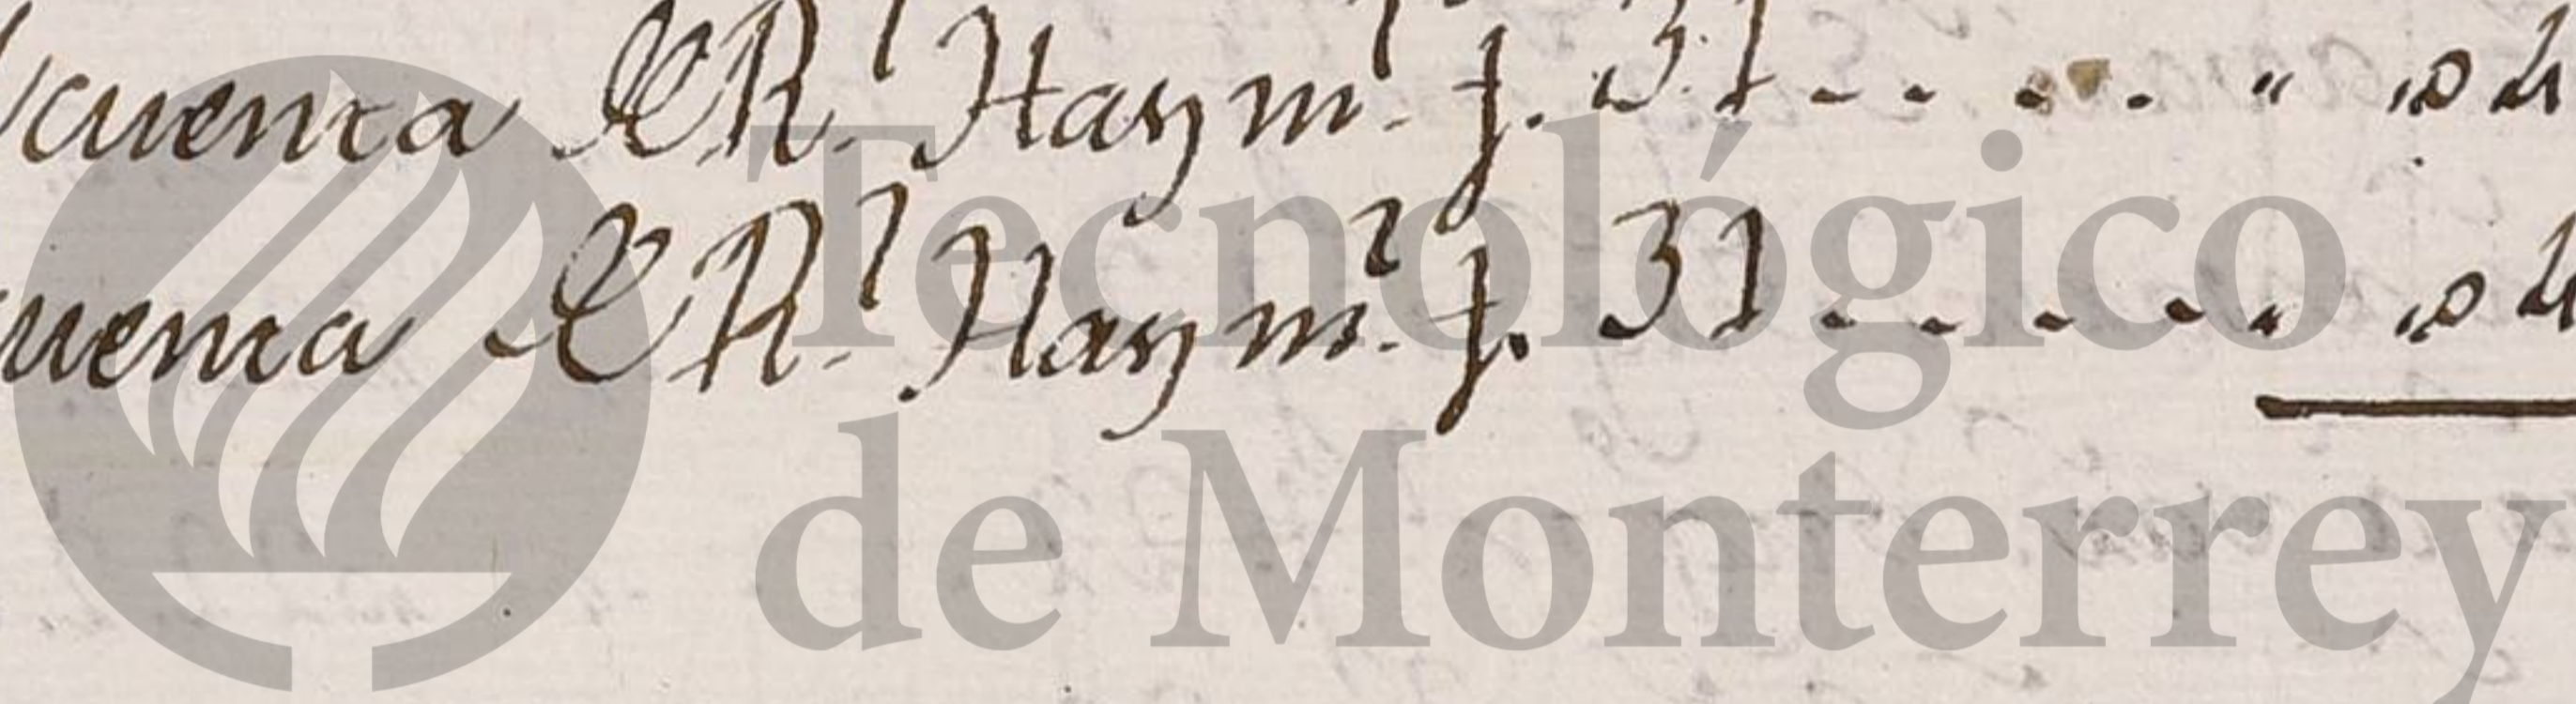 cuenta R.l Hay m.l f. 31
cuenta R.l Hay m.l f. 31
Tecnológico
de Monterrey